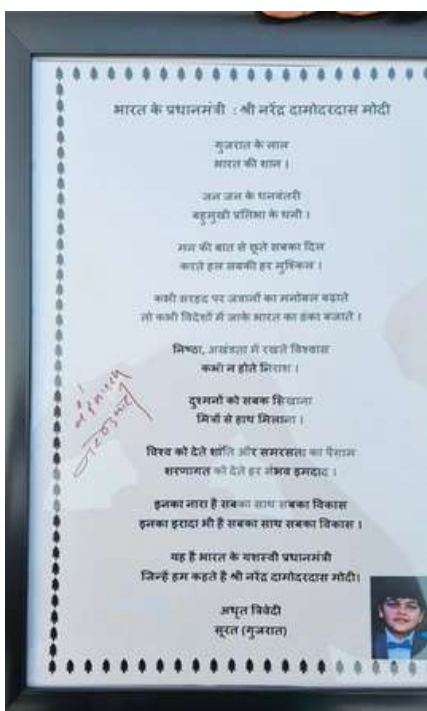 भारत के प्रधानमंत्री : श्री नरेंद्र दामोदरदास मोदी
गुजरात के लाल
भारत की शान ।
जन जन के धनवंतरी
बहुमुखी प्रतिभा के धनी ।
मन की बात से छूते सबका दिल
करते हल सबकी हर मुश्किल ।
कभी सरहद पर जवानों का मनोबल बढ़ाते
तो कभी विदेशों में जाके भारत का डंका बजाते ।
निष्ठा, अखंडता में रखते विश्वास
कभी न होते निराश ।
दुश्मनों को सबक सिखाना
मित्रों से हाथ मिलाना ।
विश्व को देते शांति और समरसता का पैगाम
शरणागत को देते हर संभव इमदाद ।
इनका नारा है सबका साथ सबका विकास
इनका इरादा भी है सबका साथ सबका विकास ।
यह है भारत के यशस्वी प्रधानमंत्री
जिन्हें हम कहते है श्री नरेंद्र दामोदरदास मोदी।
अधृत त्रिवेदी
सूरत (गुजरात)